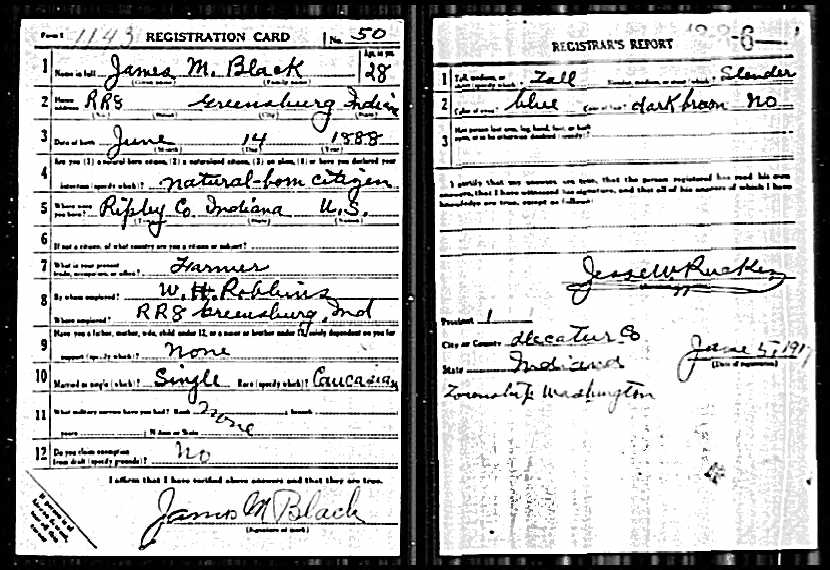 Form 1 1143 REGISTRATION CARD No. 50
1 Name in full James M. Black Age, in yrs. 28
(Given name) (Family name)
2 Home address RR8 Greensburg Indiana
(No.) (Street) (City) (State)
3 Date of birth June 14 1888
(Month) (Day) (Year)
4 Are you (1) a natural born citizen, (2) a naturalized citizen, (3) an alien, (4) or have you declared your
intention (specify which)? natural-born citizen
5 Where were you born? Ripley Co. Indiana U.S.
(Town) (State) (Nation)
6 If not a citizen, of what country are you a citizen or subject?
7 What is your present trade, occupation, or office? Farmer
8 By whom employed? W. H. Robbins
Where employed? RR8 Greensburg, Ind
9 Have you a father, mother, wife, child under 12, or a sister or brother under 12, solely dependent on you for
support (specify which)? none
10 Married or single (which)? Single Race (specify which)? Caucasian
11 What military service have you had? Rank None ; branch
years ; Nation or State
12 Do you claim exemption from draft (specify grounds)? No
I affirm that I have verified above answers and that they are true.
James M Black
(Signature or mark)
If person is of African descent, tear off this corner
REGISTRAR'S REPORT
1 Tall, medium, or short (specify which)? Tall Slender, medium, or stout (which)? Slender
2 Color of eyes? blue Color of hair? dark brown No
3 Has person lost arm, leg, hand, foot, or both eyes, or is he otherwise disabled (specify)?
I certify that my answers are true, that the person registered has read his own
answers, that I have witnessed his signature, and that all of his answers of which I have
knowledge are true, except as follows:
Jesse W Rucker
Precinct 1
City or County Decatur Co
State Indiana June 5, 1917
(Date of registration)
Township Washington